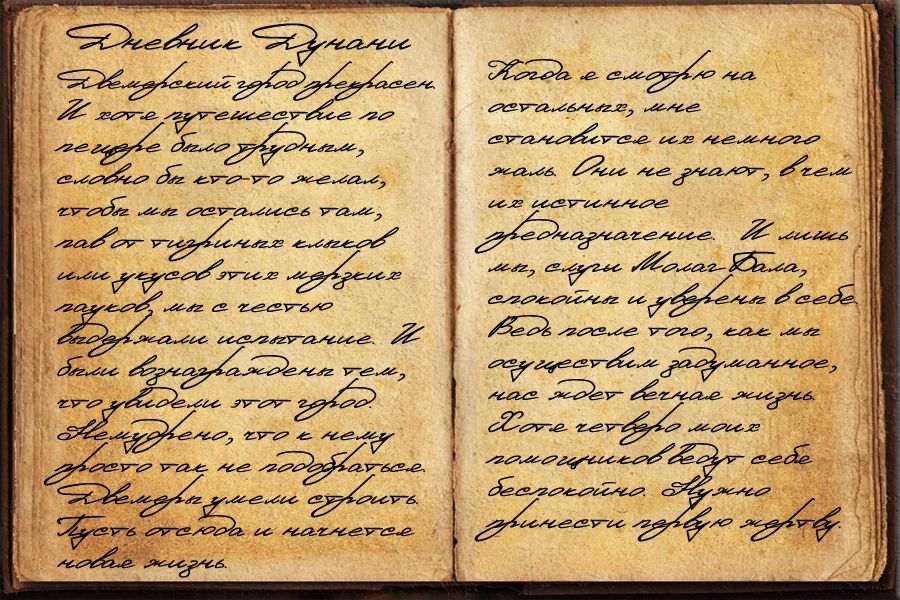 Дневник Дунани
Двемерский город прекрасен.
И хотя путешествие по
пещере было трудным,
словно бы кто-то желал,
чтобы мы остались там,
пав от тигриных клыков
или укусов этих мерзких
пауков, мы с честью
выдержали испытание. И
были вознаграждены тем,
что увидели этот город.
Немудрено, что к нему
просто так не подобраться.
Двемеры умели строить.
Пусть отсюда и начнется
новая жизнь.
Когда я смотрю на
остальных, мне
становится их немного
жаль. Они не знают, в чем
их истинное
предназначение. И лишь
мы, слуги Молаг Бала,
спокойны и уверены в себе.
Ведь после того, как мы
осуществим задуманное,
нас ждет вечная жизнь.
Хотя четверо моих
помощников ведут себя
беспокойно. Нужно
принести первую жертву.